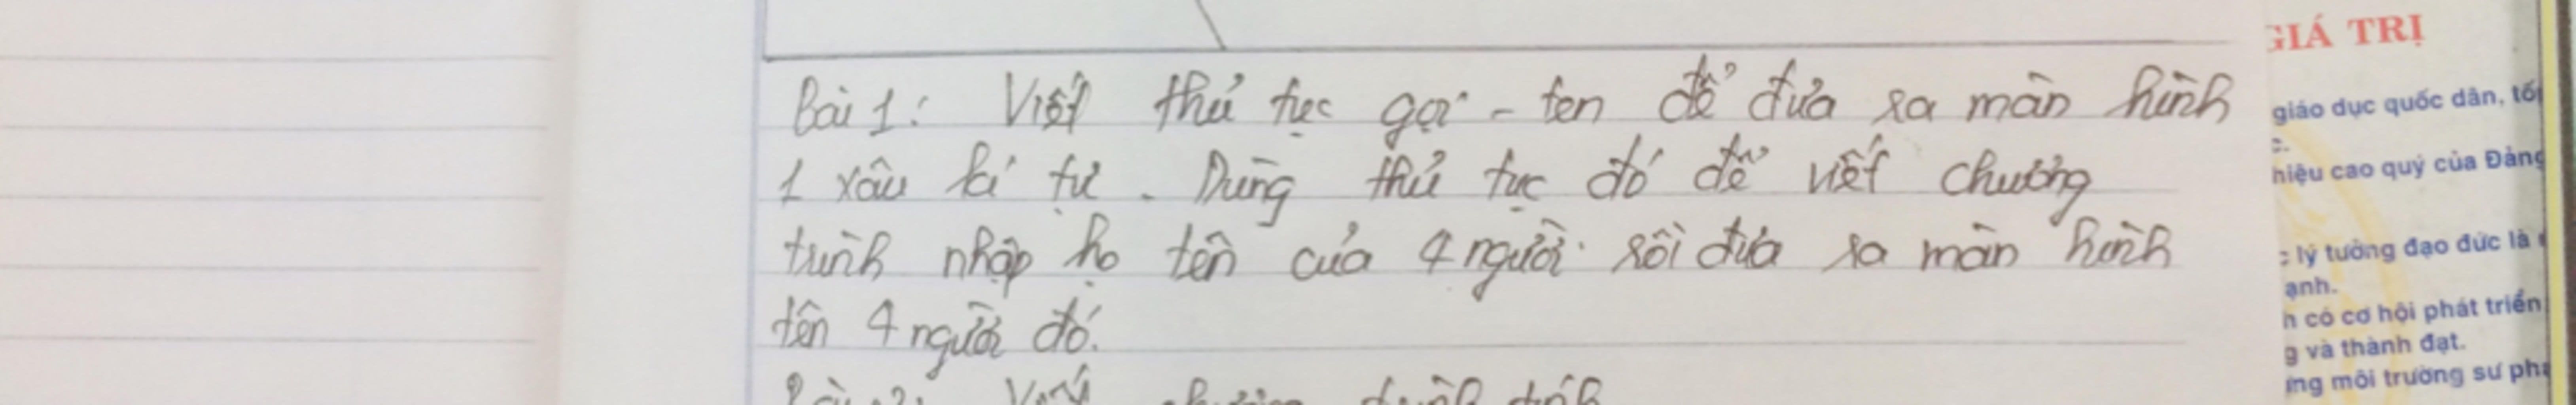 Bài 1: Viết thủ tục gọi - ten để đưa ra màn hình
1 xâu kí tự. Dùng thủ tục đó để viết chương
trình nhập họ tên của 4 người rồi đưa ra màn hình
tên 4 người đó.
GIÁ TRỊ
giáo dục quốc dân, tố
c.
hiệu cao quý của Đảng
lý tưởng đạo đức là
ạnh.
h có cơ hội phát triển
g và thành đạt.
ừng môi trường sư phạ